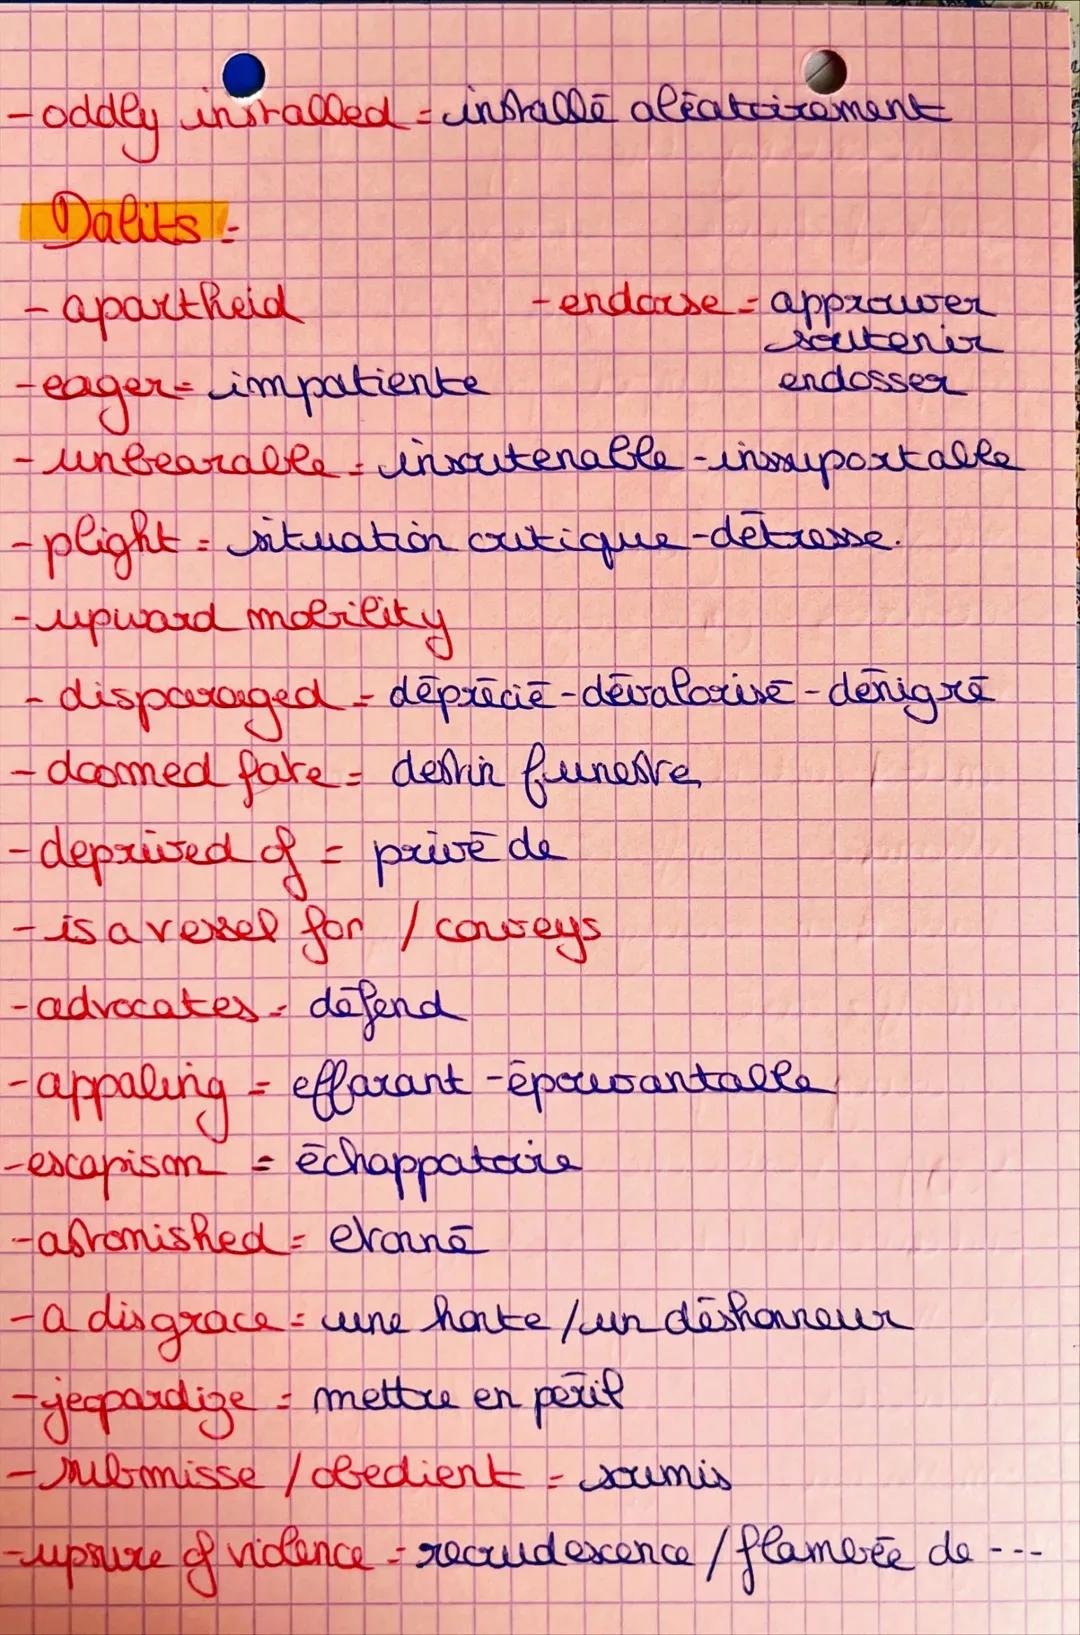 - oddly installed = installé aléatoirement
Dalits :
- apartheid
- endorse = approuver
soutenir
endosser
- eager = impatiente
- unbearable = insoutenable - insuportable
- plight = situation critique - détresse.
- upward mobility
- disparaged = déprécié - dévalorisé - dénigré
- doomed fate = destin funeste
- deprived of = privé de
- is a vessel for / conveys
- advocates = défend
- appaling = effarant - épouvantable
- escapism = échappatoire
- astonished = etonné
- a disgrace = une honte / un déshonneur
- jeopardize = mettre en péril
- submisse / obedient = soumis
- upsure of violence = recrudescence / flambée de ---